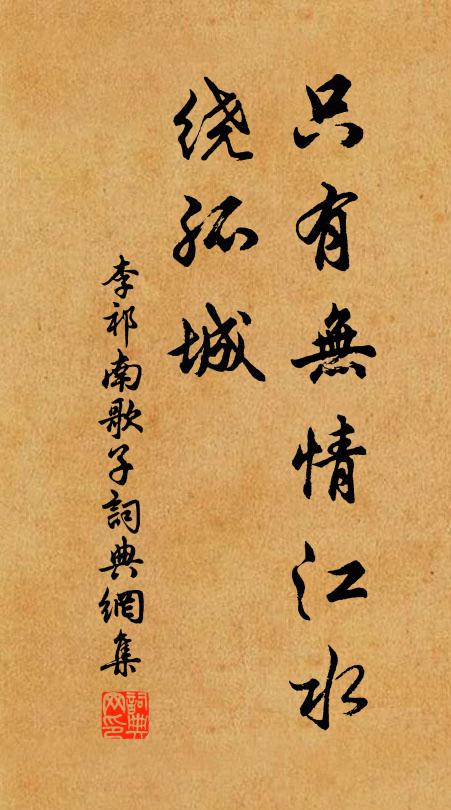 只有無情江水
绕孤城
李祁南歌子詞典網集
詞典网印